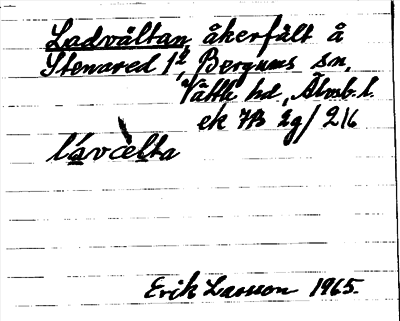 Ladvältan, åkerfält å
Stenared 1², Bergums sn,
Vättle hd, Älvsb. l.
ek 7B 2g/216
lávcèlta
Erik Larsson 1965.